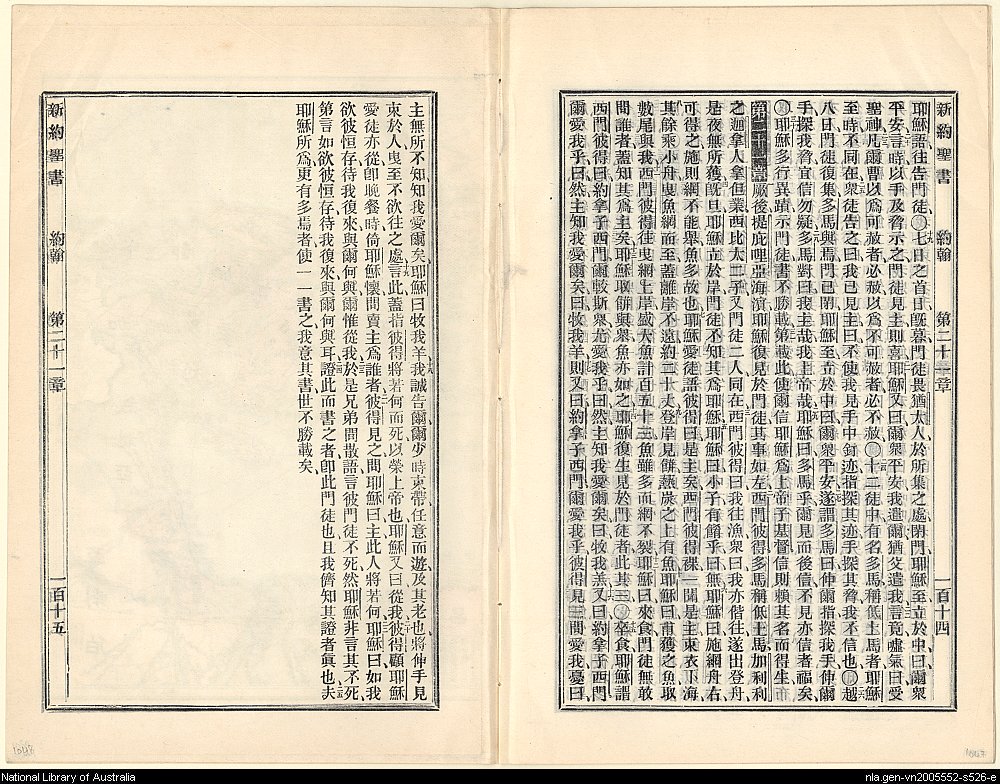 新約聖書 約翰 第二十一章 一百十四
耶穌語往告門徒○七日之首日既暮門徒畏猶太人於所集之處閉門耶穌至立於中曰爾衆
平安言時以手及脅示之門徒見主則喜耶穌又曰爾衆平安我遣爾猶父遣我言竟噓氣曰受
聖神凡爾曹以爲可赦者必赦以爲不可赦者必不赦○十二徒中有名多馬稱低土馬者耶穌
至時不同在衆徒告之曰我已見主曰不使我見手中釘迹指探其迹手探其脅我不信也○越
八日門徒復集多馬與焉門已閉耶穌至立於中曰爾衆平安遂謂多馬曰伸爾指探我手伸爾
手探我脅宜信勿疑多馬對曰我主哉我上帝哉耶穌曰多馬乎爾見而後信不見亦信者福矣
○耶穌多行異蹟示門徒書不勝載第載此使爾信耶穌爲上帝子基督信則賴其名而得生
第二十一章 厥後提庇哩亞海濱耶穌復見於門徒其事如左西門彼得多馬稱低土馬加利利
之迦拿人拿但業西比太二子又門徒二人同在西門彼得曰我往漁衆曰我亦偕往遂出登舟
是夜無所獲既旦耶穌立於岸門徒不知其爲耶穌耶穌曰小子有餚乎曰無耶穌曰施網舟右
可得之施則網不能舉魚多故也耶穌愛徒語彼得曰是主矣西門彼得裸一聞是主束衣下海
其餘乘小舟曳魚網而至蓋離岸不遠約二十丈登岸見餅熱炭之上有魚耶穌曰甫獲之魚取
數尾與我西門彼得往曳網上岸盛大魚計百五十三魚雖多而網不裂耶穌曰來食門徒無敢
問誰者蓋知其爲主矣耶穌取餅與衆魚亦如之耶穌復生見於門徒者此其三○卒食耶穌謂
西門彼得曰約拿子西門爾較斯衆尤愛我乎曰然主知我愛爾矣曰牧我羔又曰約拿子西門
爾愛我乎曰然主知我愛爾矣曰牧我羊則又曰約拿子西門爾愛我乎彼得見三問愛我憂曰
主無所不知知我愛爾矣耶穌曰牧我羊我誠告爾爾少時束帶任意而遊及其老也將伸手見
束於人曳至不欲往之處言此蓋指彼得將若何而死以榮上帝也耶穌又曰從我彼得顧耶穌
愛徒亦從卽晚餐時倚耶穌懷問賣主爲誰者彼得見之問耶穌曰主此人將若何耶穌曰如我
欲彼恒存待我復來與爾何與爾惟從我於是兄弟間散語言彼門徒不死然耶穌非言其不死
第言如欲彼恒存待我復來與爾何與耳證此而書之者卽此門徒也且我儕知其證者眞也夫
耶穌所爲更有多焉者使一一書之我意其書世不勝載矣
新約聖書 約翰 第二十一章 一百十五
National Library of Australia
nla.gen-vn2005552-s526-e